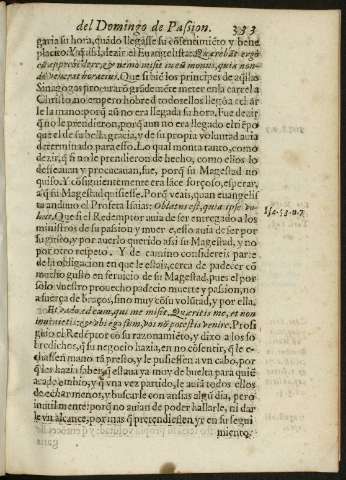 del Domingo de Pasion. 333
garia su hora, quãdo llegasse su cõsentimiẽto y bene
placito. Y assi dezir el Euangelista: Quærebãt ergo
eũ apprehẽdere, & nemo misit in eũ manus, quia non-
dũ venerat hora eius. Que si biẽ los principes de aq̃llas
Sanagogas procurarõ grãdemẽte meter en la carcel a
Christo, no empero hõbre d todos ellos llegò a echar
le la mano: porq̃ aũ no era llegada su hora. Fue dezir
q̃ no le prendieron, porq̃ aun no era llegado el tiẽpo
que el de su bella gracia, y de su propia voluntad auia
determinado para esso. Lo qual monta tanto, como
dezir, q̃ si no le prendieron de hecho, como ellos lo
desseauan y procurauan, fue, porq̃ su Magestad no
quiso. Y cõsiguientemente era lãce forçoso, esperar,
a q̃ su Magestad quisiesse. Porq̃ veais, quan euangelis
ta anduuo el Profeta Isaias: Oblatus est, quia ipse vo
luit. Que si el Redemptor auia de ser entregado a los
ministros de su passion y muerte, esso auia de ser por
su gusto, y por auerlo querido assi su Magestad, y no
por otro respeto. Y de camino considereis parte
de la obligacion en que le estais, cerca de padecer cõ
mucho gusto en seruicio de su Magestad, pues el por
solo vuestro prouecho padecio muerte y passion, no
a fuerça de braços, sino muy cõ su volũtad, y por ella.
Et vado ad eum, qui me misit. Quæritis me, et non
inuenietis: et vbi ego sum, vos nõ potestis venire. Prosi
guio el Redẽptor cõ su razonamiẽto, y dixo a los so
bredichos, q̃ su negocio hazia, en no cõsentir, q̃ le e-
chassen mano tã presto, y le pusiessen a vn cabo, porq̃
q̃ les hazia saber, q̃ estaua ya muy de buelta para quiẽ
aca lo embio, y q̃ vna vez partido, le auiã todos ellos
de echar menos, y buscarle con ansias algũ dia, pero
inutilmente: porq̃ no auian de poder hallarle, ni dar
le vn alcance, por mas q̃ pretendiessen yr en su segui
miento,
Isa. 53. n. 7.